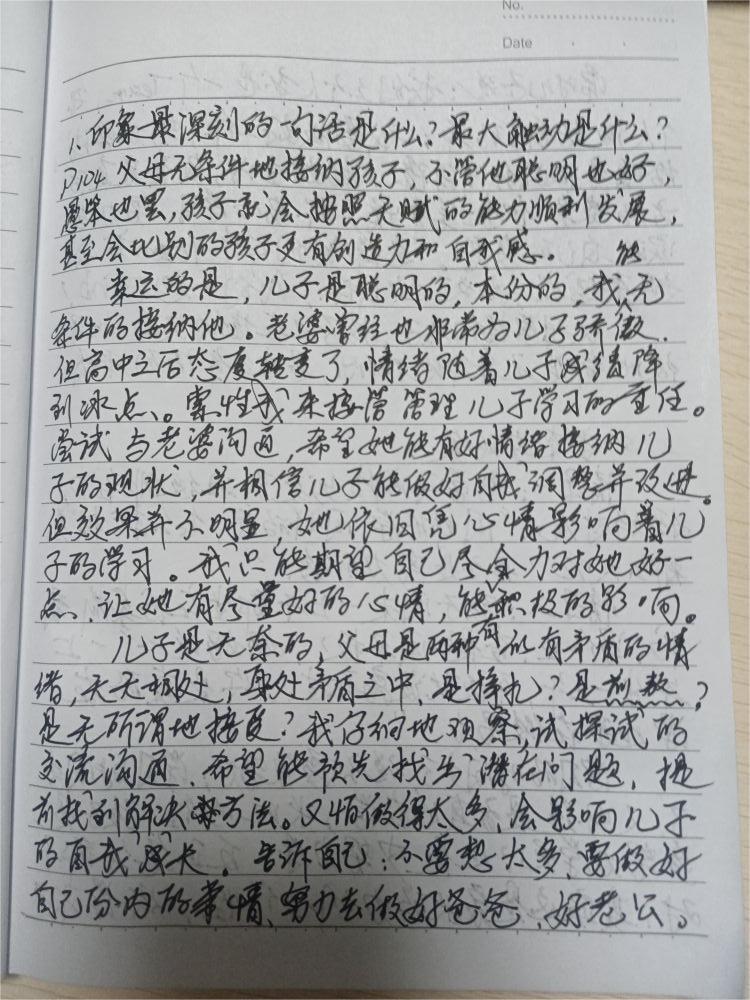 No.
Date
1、印象最深刻的一句话是什么？最大触动是什么？
P104 父母无条件地接纳孩子，不管他聪明也好，
愚笨也罢，孩子就会按照天赋的能力顺利发展，
甚至会比别的孩子更有创造力和自我感。
能
幸运的是，儿子是聪明的，本份的，我无
条件的接纳他。老婆曾经也非常为儿子骄傲，
但高中之后态度转变了，情绪随着儿子成绩降
到冰点、。索性我来接管管理儿子学习的重任。
尝试与老婆沟通，希望她能有好情绪接纳儿
子的现状，并相信儿子能做好自我调整并改进。
但效果并不明显，她依旧凭心情影响着儿
子的学习。我只能期望自己尽全力对她好一
点、让她有尽量好的心情，能积极的影响。
有
儿子是无奈的，父母是两种似有矛盾的情
绪，天天相处，身处矛盾之中、是挣扎？是煎熬？
是无所谓地接受？我仔细地观察，试探试的
交流沟通、希望能预先找出潜在问题，提
前找到解决方法。又怕做得太多、会影响儿子
的自我成长。告诉自己：不要想太多、要做好
自己份内的事情、努力去做好爸爸、好老公。